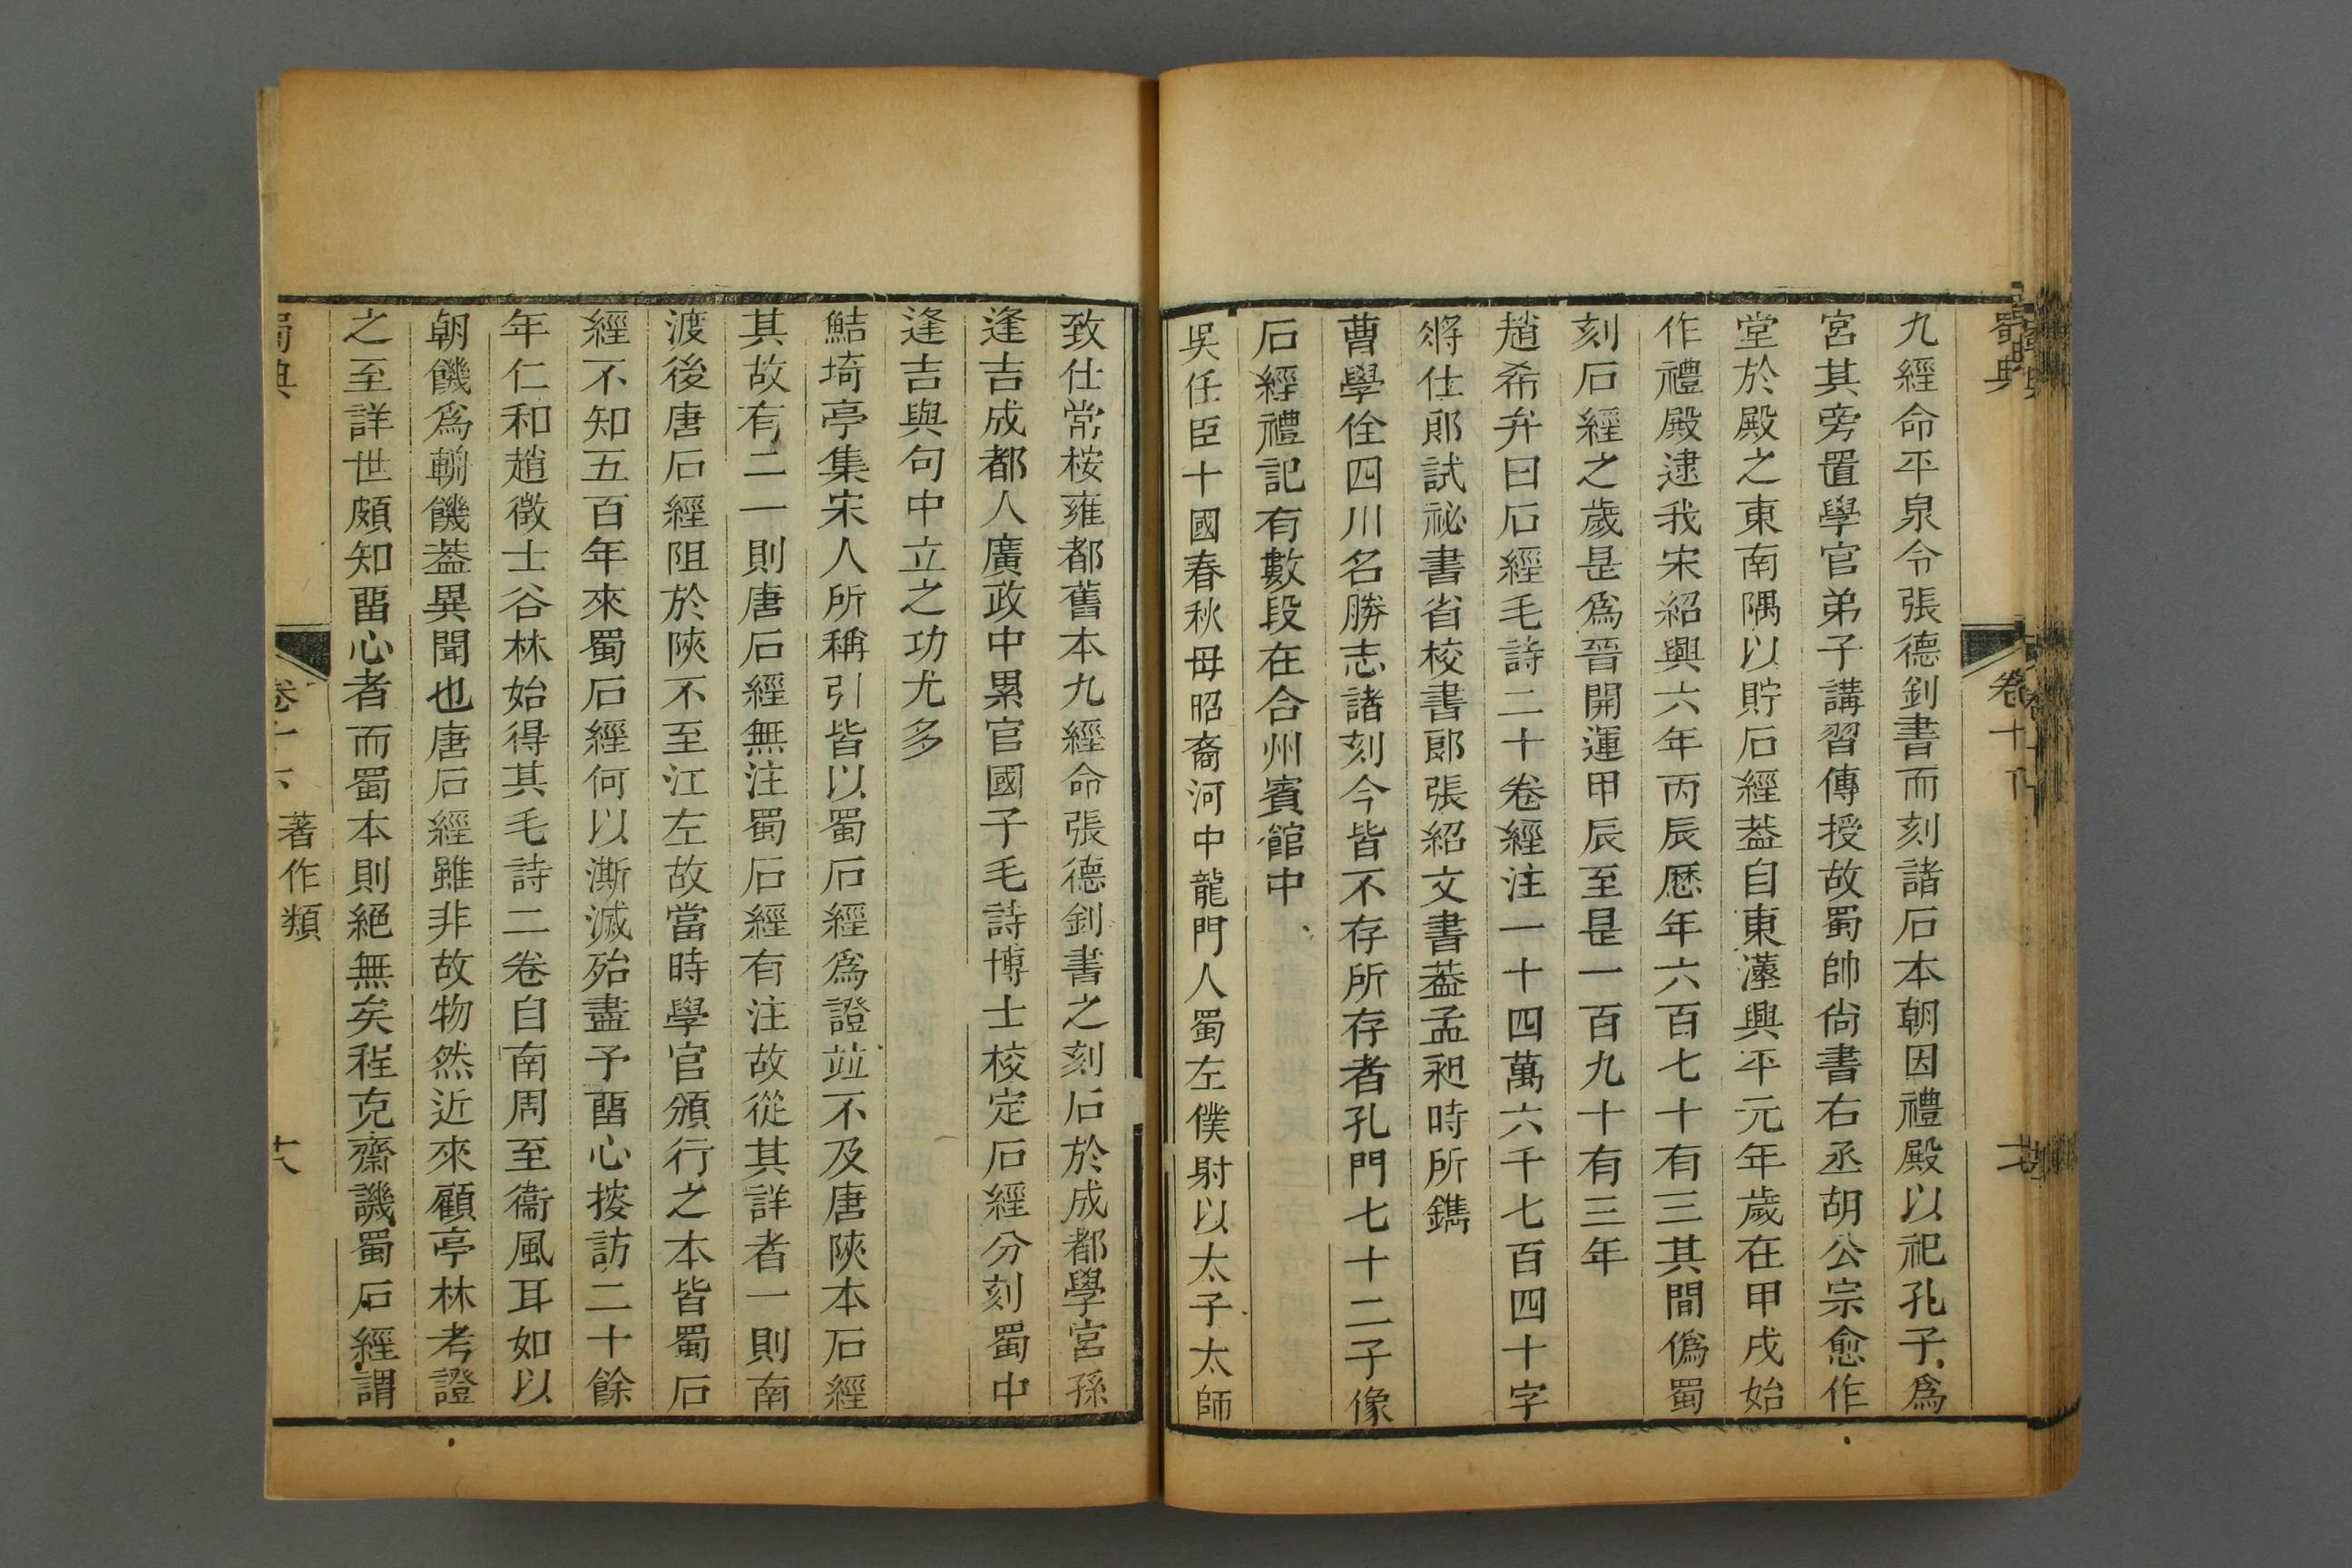 蜀典
卷十
九經命平泉令張德釗書而刻諸石本朝因禮殿以祀孔子爲
宮其旁置學官弟子講習傳授故蜀帥尙書右丞胡公宗愈作
堂於殿之東南隅以貯石經葢自東漢興平元年歲在甲戌始
作禮殿逮我宋紹興六年丙辰歷年六百七十有三其間僞蜀
刻石經之歲是爲晉開運甲辰至是一百九十有三年
趙希弁曰石經毛詩二十卷經注一十四萬六千七百四十字
將仕郎試祕書省校書郎張紹文書葢孟昶時所鐫
曹學佺四川名勝志諸刻今皆不存所存者孔門七十二子像
石經禮記有數段在合州賓館中
吳任臣十國春秋毋昭裔河中龍門人蜀左僕射以太子太師
致仕常桉雍都舊本九經命張德釗書之刻石於成都學宮孫
逢吉成都人廣政中累官國子毛詩博士校定石經分刻蜀中
逢吉與句中立之功尤多
鮚埼亭集宋人所稱引皆以蜀石經爲證竝不及唐陝本石經
其故有二一則唐石經無注蜀石經有注故從其詳者一則南
渡後唐石經阻於陝不至江左故當時學官頒行之本皆蜀石
經不知五百年來蜀石經何以澌滅殆盡予畱心搜訪二十餘
年仁和趙徵士谷林始得其毛詩二卷自南周至衞風耳如以
朝饑爲輖饑葢異聞也唐石經雖非故物然近來顧亭林考證
之至詳世頗知畱心者而蜀本則絕無矣程克齋譏蜀石經謂
蜀典
卷十
著作類
十八